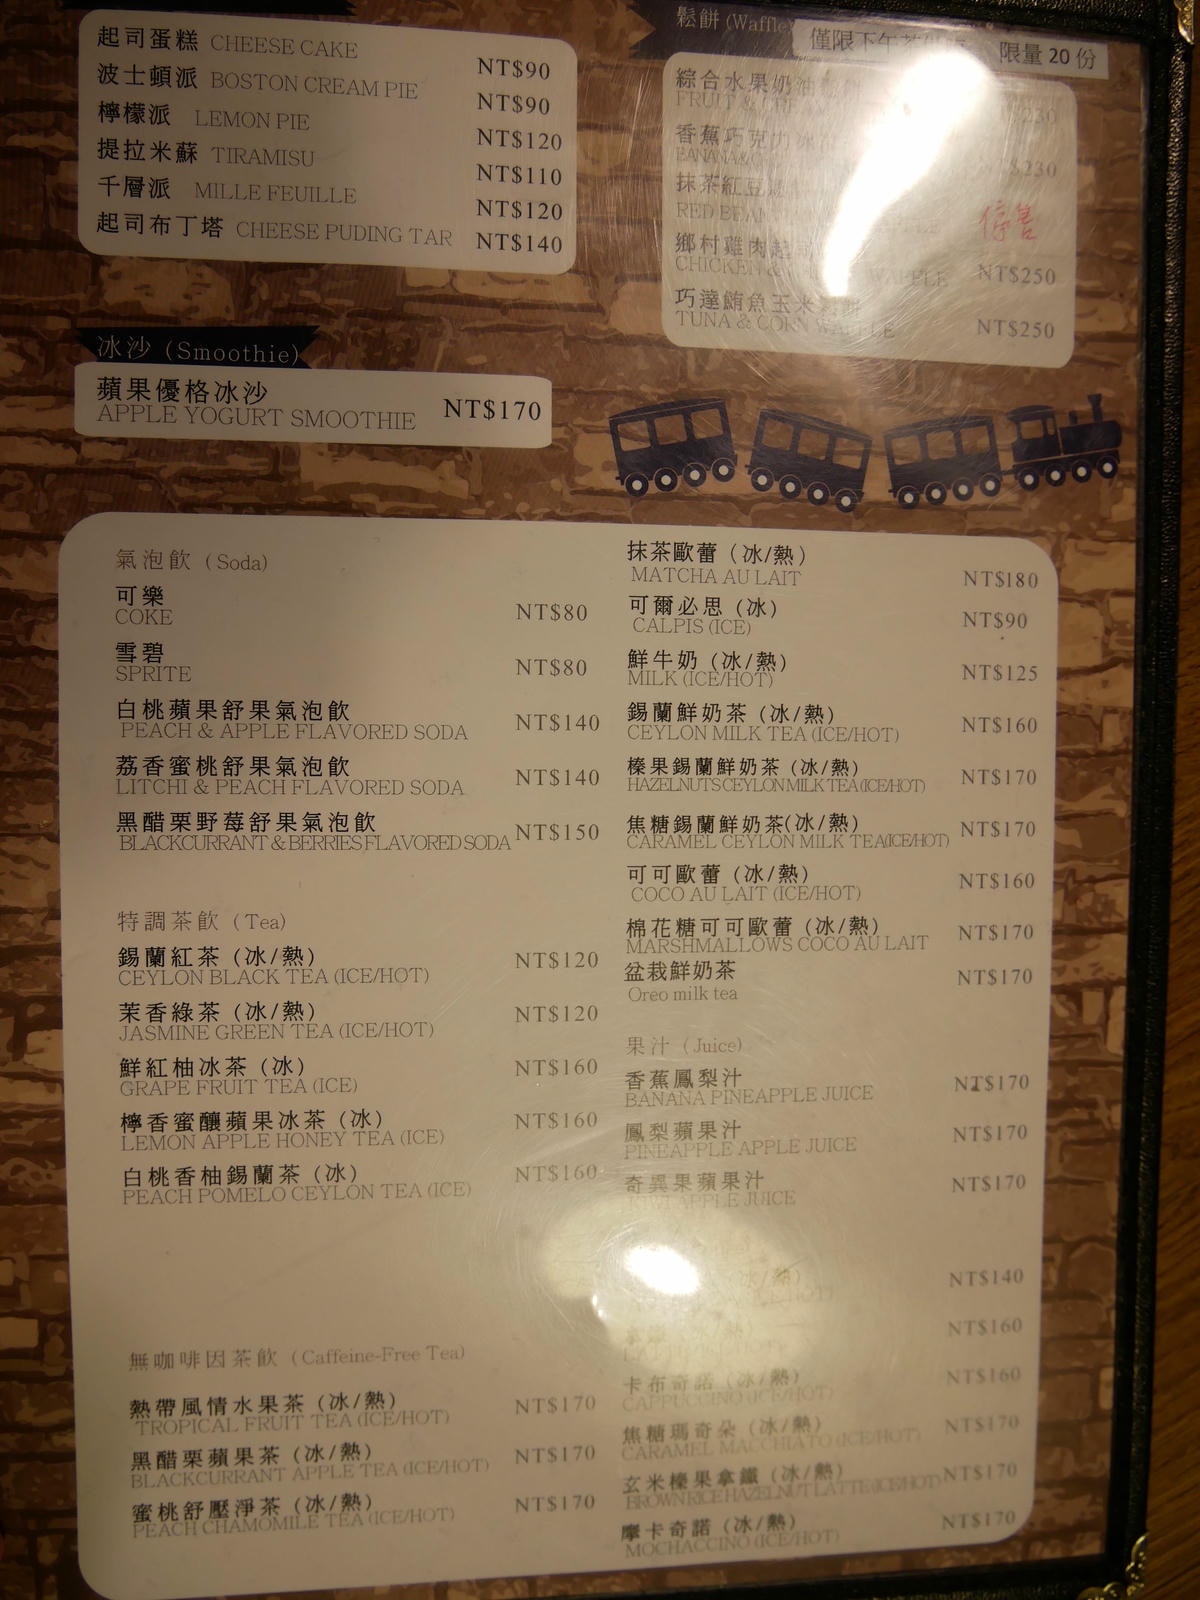 起司蛋糕 CHEESE CAKE NT$90
波士頓派 BOSTON CREAM PIE NT$90
檸檬派 LEMON PIE NT$120
提拉米蘇 TIRAMISU NT$110
千層派 MILLE FEUILLE NT$120
起司布丁塔 CHEESE PUDING TAR NT$140
鬆餅 (Waffle
僅限下午茶 限量 20 份
綜合水果奶油
FRUIT &
230
香蕉巧克力
BANANA&
$230
抹茶紅豆
RED BEAN
停售
鄉村雞肉起
CHICKEN & WAFFLE NT$250
巧達鮪魚玉米鬆餅
TUNA & CORN WAFFLE NT$250
冰沙 (Smoothie)
蘋果優格冰沙
APPLE YOGURT SMOOTHIE NT$170
氣泡飲 (Soda)
可樂
COKE NT$80
雪碧
SPRITE NT$80
白桃蘋果舒果氣泡飲
PEACH & APPLE FLAVORED SODA NT$140
荔香蜜桃舒果氣泡飲
LITCHI & PEACH FLAVORED SODA NT$140
黑醋栗野莓舒果氣泡飲
BLACKCURRANT & BERRIES FLAVORED SODA NT$150
特調茶飲 (Tea)
錫蘭紅茶 (冰/熱)
CEYLON BLACK TEA (ICE/HOT) NT$120
茉香綠茶 (冰/熱)
JASMINE GREEN TEA (ICE/HOT) NT$120
鮮紅柚冰茶 (冰)
GRAPE FRUIT TEA (ICE) NT$160
檸香蜜釀蘋果冰茶 (冰)
LEMON APPLE HONEY TEA (ICE) NT$160
白桃香柚錫蘭茶 (冰)
PEACH POMELO CEYLON TEA (ICE) NT$160
無咖啡因茶飲 (Caffeine-Free Tea)
熱帶風情水果茶 (冰/熱)
TROPICAL FRUIT TEA (ICE/HOT) NT$170
黑醋栗蘋果茶 (冰/熱)
BLACKCURRANT APPLE TEA (ICE/HOT) NT$170
蜜桃舒壓淨茶 (冰/熱)
PEACH CHAMOMILE TEA (ICE/HOT) NT$170
抹茶歐蕾 (冰/熱)
MATCHA AU LAIT NT$180
可爾必思 (冰)
CALPIS (ICE) NT$90
鮮牛奶 (冰/熱)
MILK (ICE/HOT) NT$125
錫蘭鮮奶茶 (冰/熱)
CEYLON MILK TEA (ICE/HOT) NT$160
榛果錫蘭鮮奶茶 (冰/熱)
HAZELNUTS CEYLON MILK TEA (ICE/HOT) NT$170
焦糖錫蘭鮮奶茶(冰/熱)
CARAMEL CEYLON MILK TEA(ICE/HOT) NT$170
可可歐蕾 (冰/熱)
COCO AU LAIT (ICE/HOT) NT$160
棉花糖可可歐蕾 (冰/熱)
MARSHMALLOWS COCO AU LAIT NT$170
盆栽鮮奶茶
Oreo milk tea NT$170
果汁 (Juice)
香蕉鳳梨汁
BANANA PINEAPPLE JUICE NT$170
鳳梨蘋果汁
PINEAPPLE APPLE JUICE NT$170
奇異果蘋果汁
KIWI APPLE JUICE NT$170
(冰/熱) NT$140
NT$160
卡布奇諾 (冰/熱)
CAPPUCCINO (ICE/HOT) NT$160
焦糖瑪奇朵 (冰/熱)
CARAMEL MACCHIATO (ICE/HOT) NT$170
玄米榛果拿鐵 (冰/熱)
BROWN RICE HAZELNUT LATTE (ICE/HOT) NT$170
摩卡奇諾 (冰/熱)
MOCHACCINO (ICE/HOT) NT$170